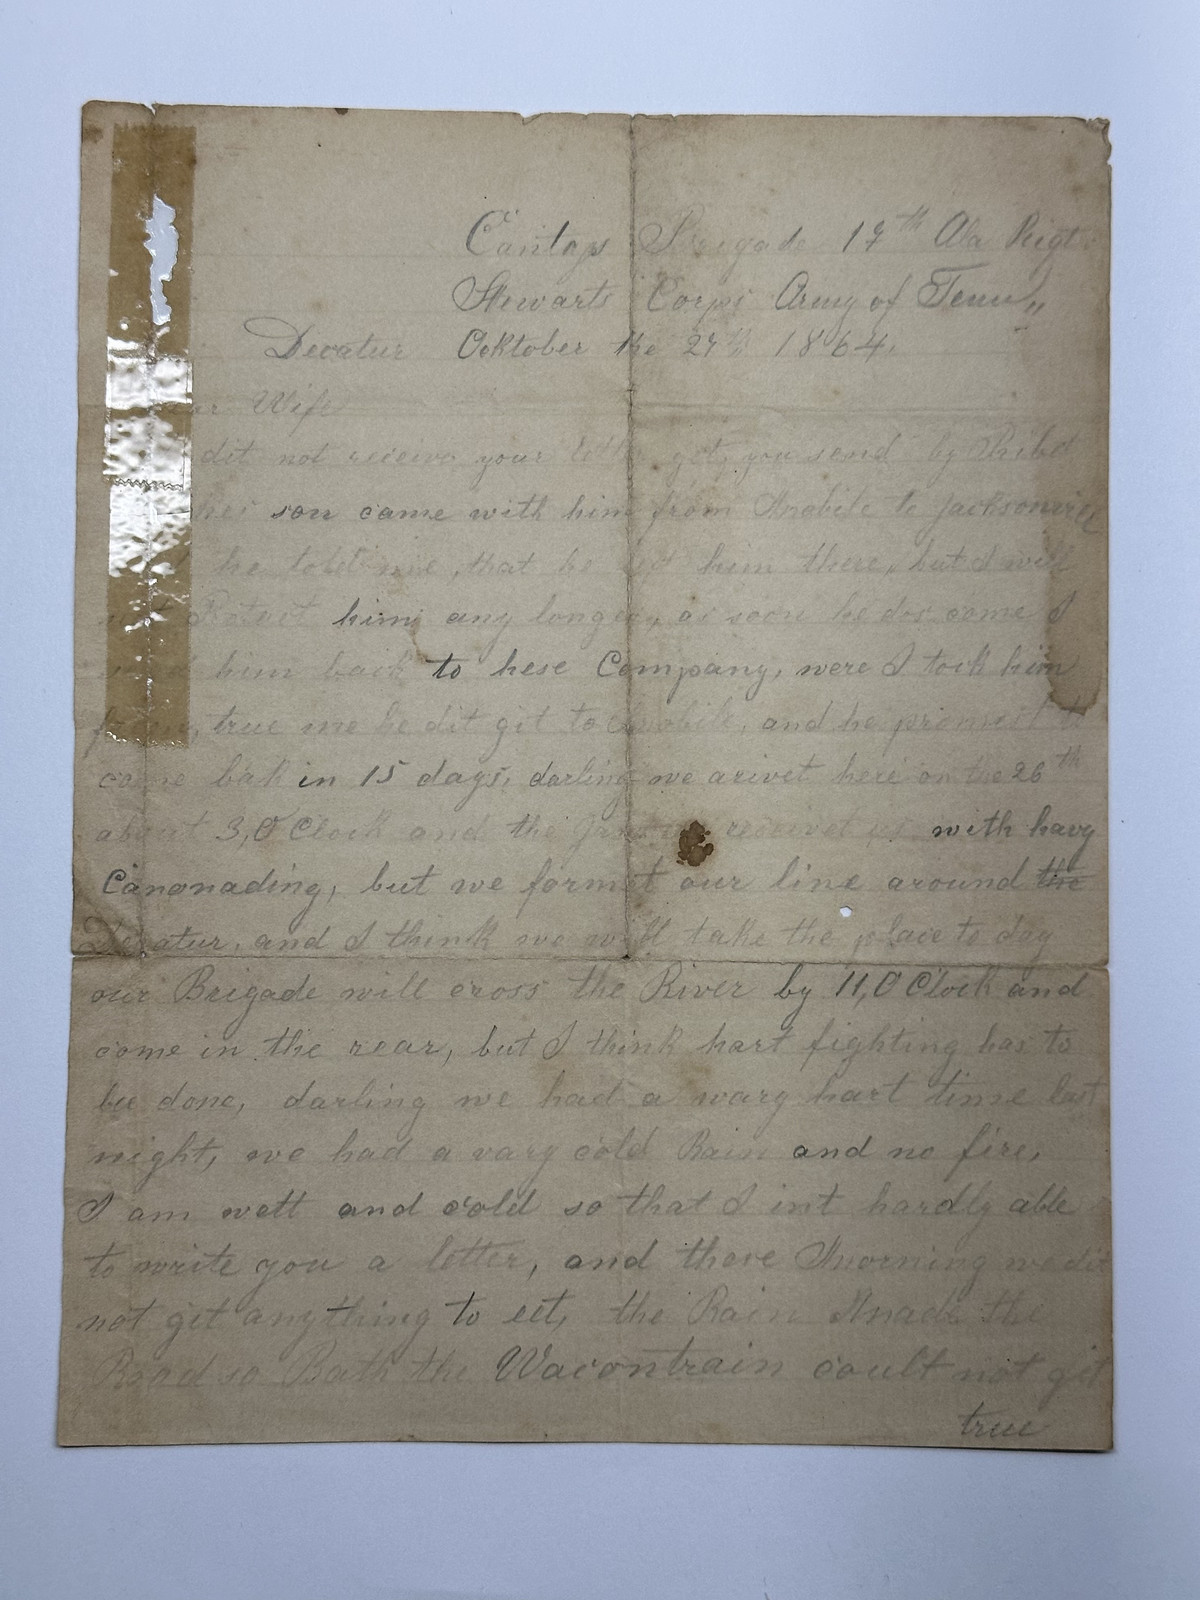 Cantays Brigade 17th Ala Rigt.
Stewarts Corps Army of Tenn,,
Decatur Ocktober the 27th 1864.
Wife
dit not receive your letter yet, you send by
hes son came with him from Mobile to Jacksonvill
he told me, that he left him there, but I will
not Protect him any longer, as soon he dos come I
send him back to hese Company, were I tock him
from, true me he dit git to Mobile, and he promist to
came bak in 15 days, darling we arivet here on the 26th
about 3,O Clock and the receivet us with havy
Canonading, but we formet our line around the
Decatur, and I think we will take the place to day
our Brigade will cross the River by 11,O Clock and
come in the rear, but I think hart fighting has to
bee done, darling we had a wary hart time last
night, we had a vary cold Rain and no fire,
I am wett and cold so that I int hardly able
to write you a letter, and these Morning we dit
not get anything to eet, the Rain Made the
Road so Bath the Wacontrain coult not git
true